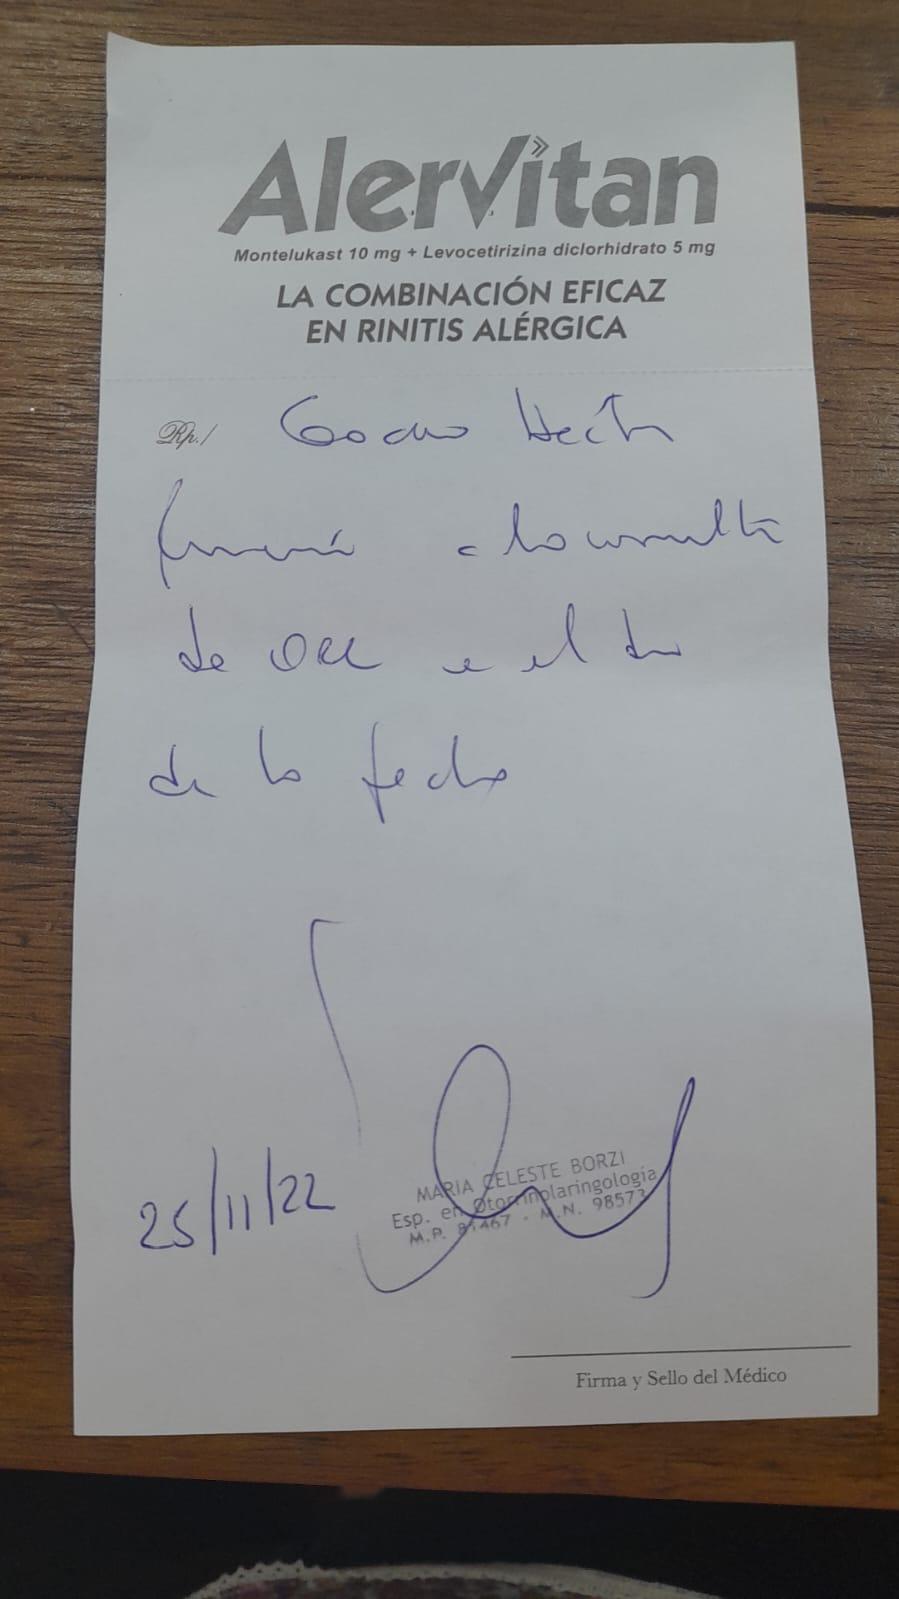 Alervitan
Montelukast 10 mg + Levocetirizina diclorhidrato 5 mg
LA COMBINACIÓN EFICAZ
EN RINITIS ALÉRGICA
Rp./ Hector
a la consulta
de ORL en el dia
de la fecha
25/11/22
MARIA CELESTE BORZI
Esp. en Otorrinolaringologia
M.P. 81467 - M.N. 98573
Firma y Sello del Médico